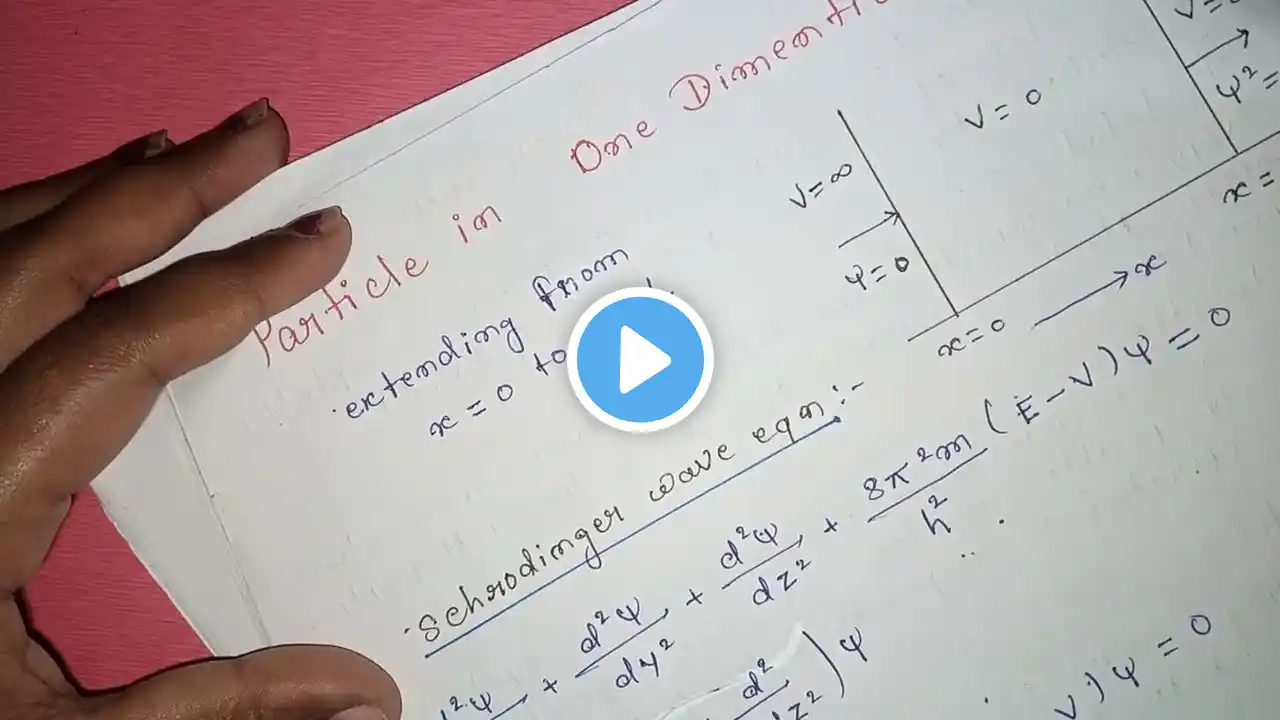 Particle in One Dimenti
extending from
x = 0 to
V = ∞
ψ = 0
V = 0
ψ² =
x =
x = 0 → x
Schrodinger wave eqn :-
d²ψ + d²ψ/dy² + d²ψ/dz² + 8π²m/h² (E - V) ψ = 0
d²/dz² ) ψ
V) ψ = 0